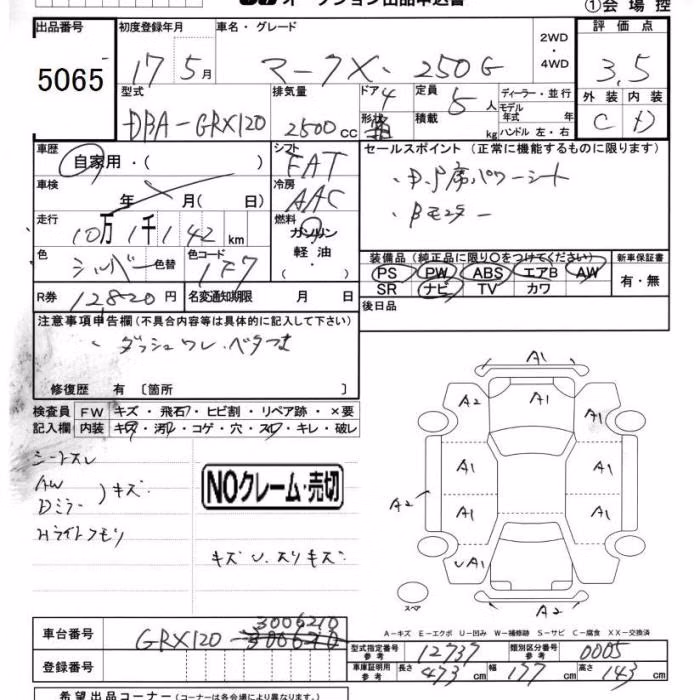 オークション出品申込書
①会場控
出品番号 5065
初度登録年月 17 5月
車名・グレード マークX・250G
2WD・4WD
評価点 3.5
外装 C 内装 D
型式 DBA-GRX120
排気量 2500cc
ドア 4 形状
定員 5人
積載 kg
ディーラー・並行
モデル年式 年
ハンドル 左・右
車歴 自家用・( )
シフト FAT
セールスポイント (正常に機能するものに限ります)
・D.P席パワーシート
・Bモニター
車検 年 月(日)
冷房 AAC
走行 10万1千142km
燃料 ガソリン 軽油・( )
色 シルバー 色替 色コード 1F7
装備品 (純正品に限り〇をつけてください)
PS PW ABS エアB AW
SR ナビ TV カワ
新車保証書 有・無
R券 12820円 名変通知期限 月 日
後日品
注意事項申告欄(不具合内容等は具体的に記入して下さい)
・ダッシュワレ・ベタつき
修復歴 有 〔箇所 〕
検査員記入欄
FW キズ・飛石・ヒビ割・リペア跡・×要
内装 キズ・汚レ・コゲ・穴・スレ・キレ・破レ
シートスレ
AW
Dミラー )キズ
HライトクモリNOクレーム・売切
キズ U.スリキズ
A1
A2 A1 A1
A1 A1
A2 A1 A1
UA1
A2
スペア
A-キズ E-エクボ U-凹み W-補修跡 S-サビ C-腐食 XX-交換済
車台番号 GRX120 3006210
登録番号
型式指定番号 参考 12737
類別区分番号 参考 0005
車庫証明用 参考 長さ 473cm 幅 177cm 高さ 143cm
希望出品コーナー (コーナーは各会場により異なります。)